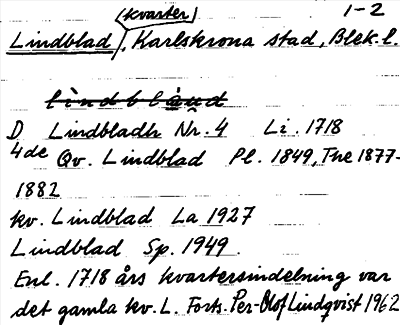 (kvarter) 1-2
Lindblad, Karlskrona stad, Blek. l.
lindblåud
D Lindbladh Nr. 4 Li. 1718
4de Qv. Lindblad Pl. 1849, Tne 1877-
1882
kv. Lindblad La 1927
Lindblad Sp. 1949.
Enl. 1718 års kvartersindelning var
det gamla kv. L. Forts. Per-Olof Lindqvist 1962